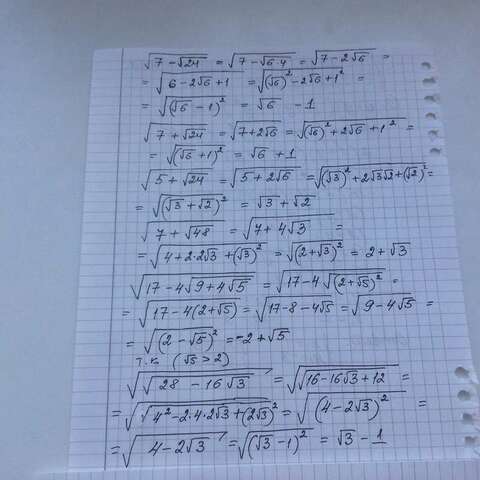 √(7 − √24) = √(7 − √(6·4)) = √(7 − 2√6) =
= √(6 − 2√6 + 1) = √((√6)² − 2√6 + 1²) =
= √((√6 − 1)²) = √6 − 1
√(7 + √24) = √(7 + 2√6) = √((√6)² + 2√6 + 1²) =
= √((√6 + 1)²) = √6 + 1
√(5 + √24) = √(5 + 2√6) = √((√3)² + 2√3√2 + (√2)²) =
= √((√3 + √2)²) = √3 + √2
√(7 + √48) = √(7 + 4√3) =
= √(4 + 2·2√3 + (√3)²) = √((2 + √3)²) = 2 + √3
√(17 − 4√(9 + 4√5)) = √(17 − 4√((2 + √5)²)) =
= √(17 − 4(2 + √5)) = √(17 − 8 − 4√5) = √(9 − 4√5) =
= √((2 − √5)²) = −2 + √5
т.к (√5 > 2)
√(√(28 − 16√3)) = √(√(16 − 16√3 + 12)) =
= √(√(4² − 2·4·2√3 + (2√3)²)) = √(√((4 − 2√3)²)) =
= √(4 − 2√3) = √((√3 − 1)²) = √3 − 1